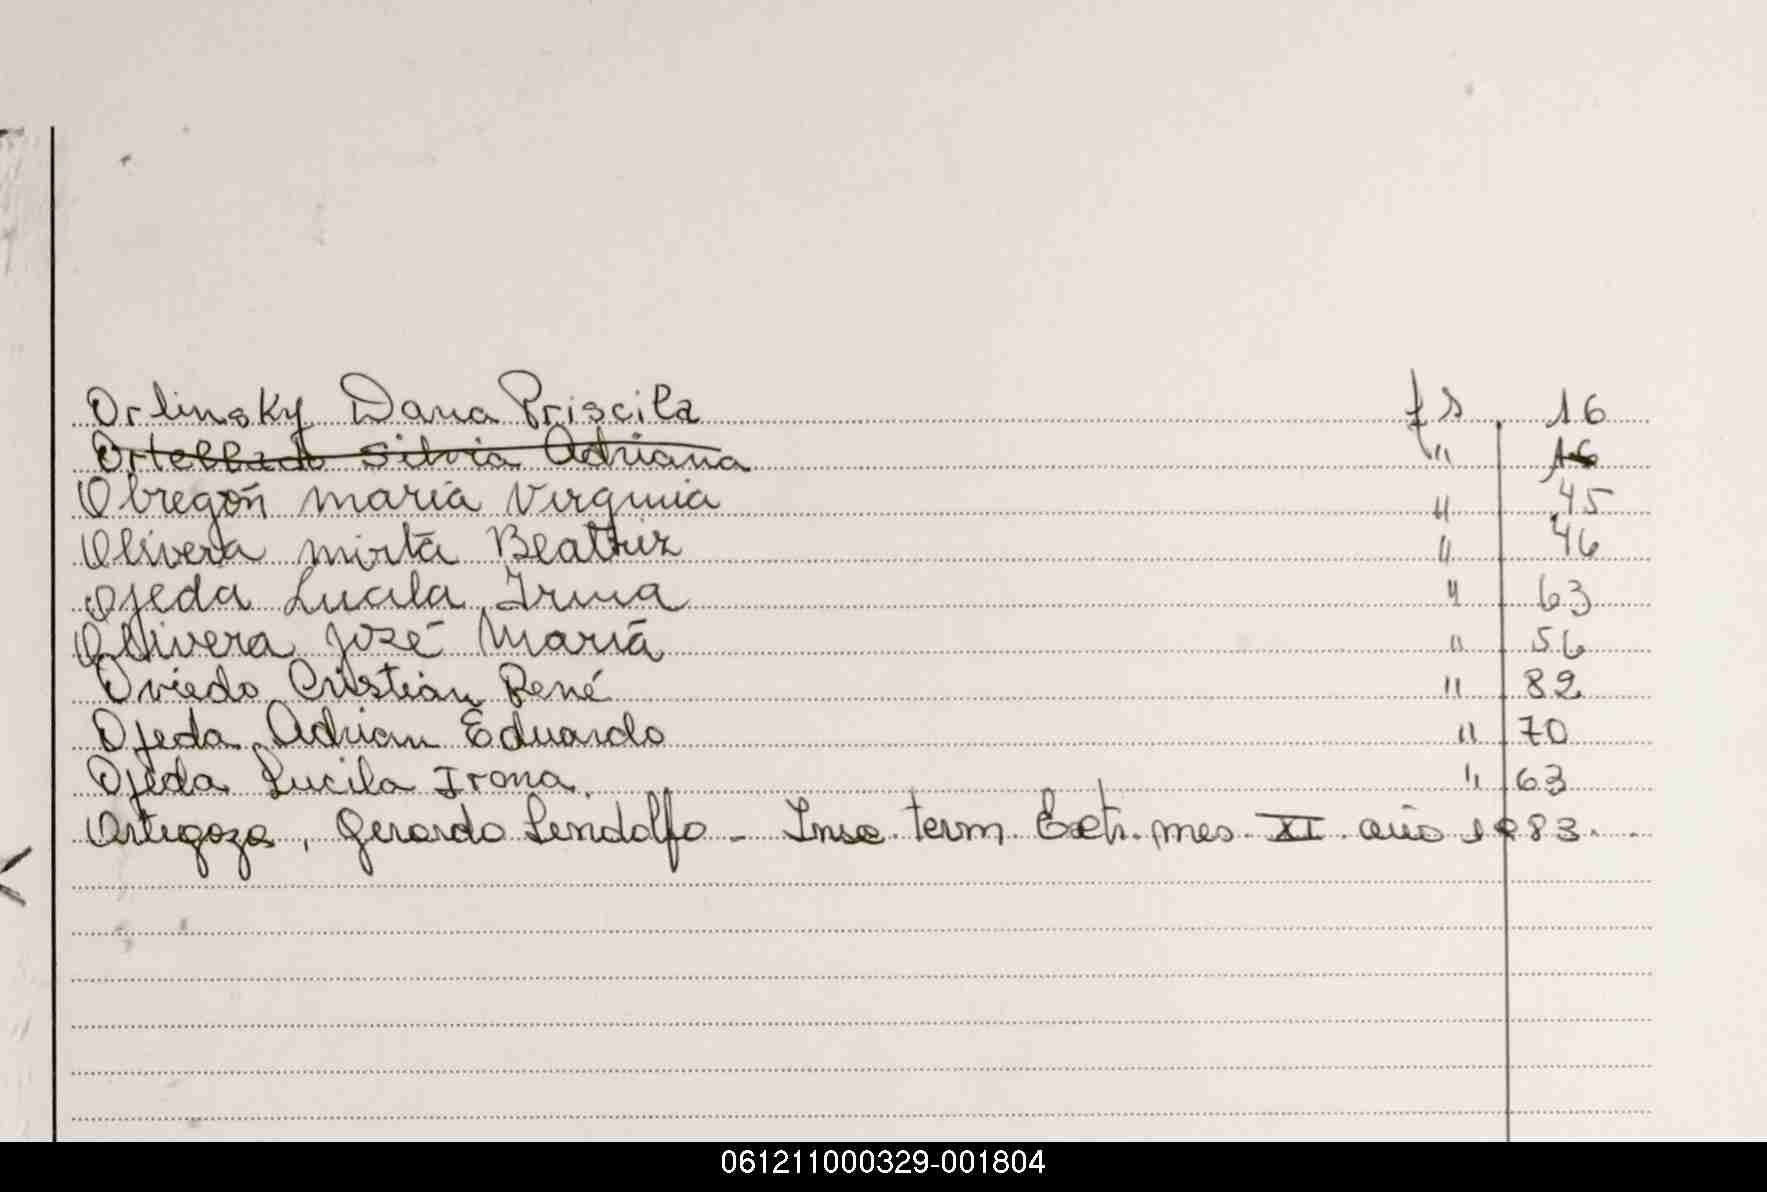 Orlinsky Dana Priscila fs 16
Ortellado Silvia Adriana " 16
Obregón María Virginia " 45
Olivera Mirta Beatriz " 46
Ojeda Lucila Irma " 63
Olivera José María " 56
Oviedo Cristian René " 82
Ojeda Adrian Eduardo " 70
Ojeda Lucila Irona. " 63
Ortigoza, Gerardo Lendolfo - Insc. term. Ext. mes XI año 1983.
061211000329-001804